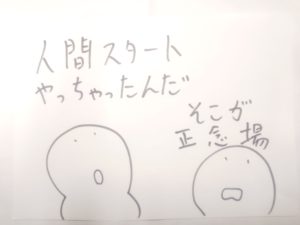 人間スタート
やっちゃったんだ
そこが
正念場